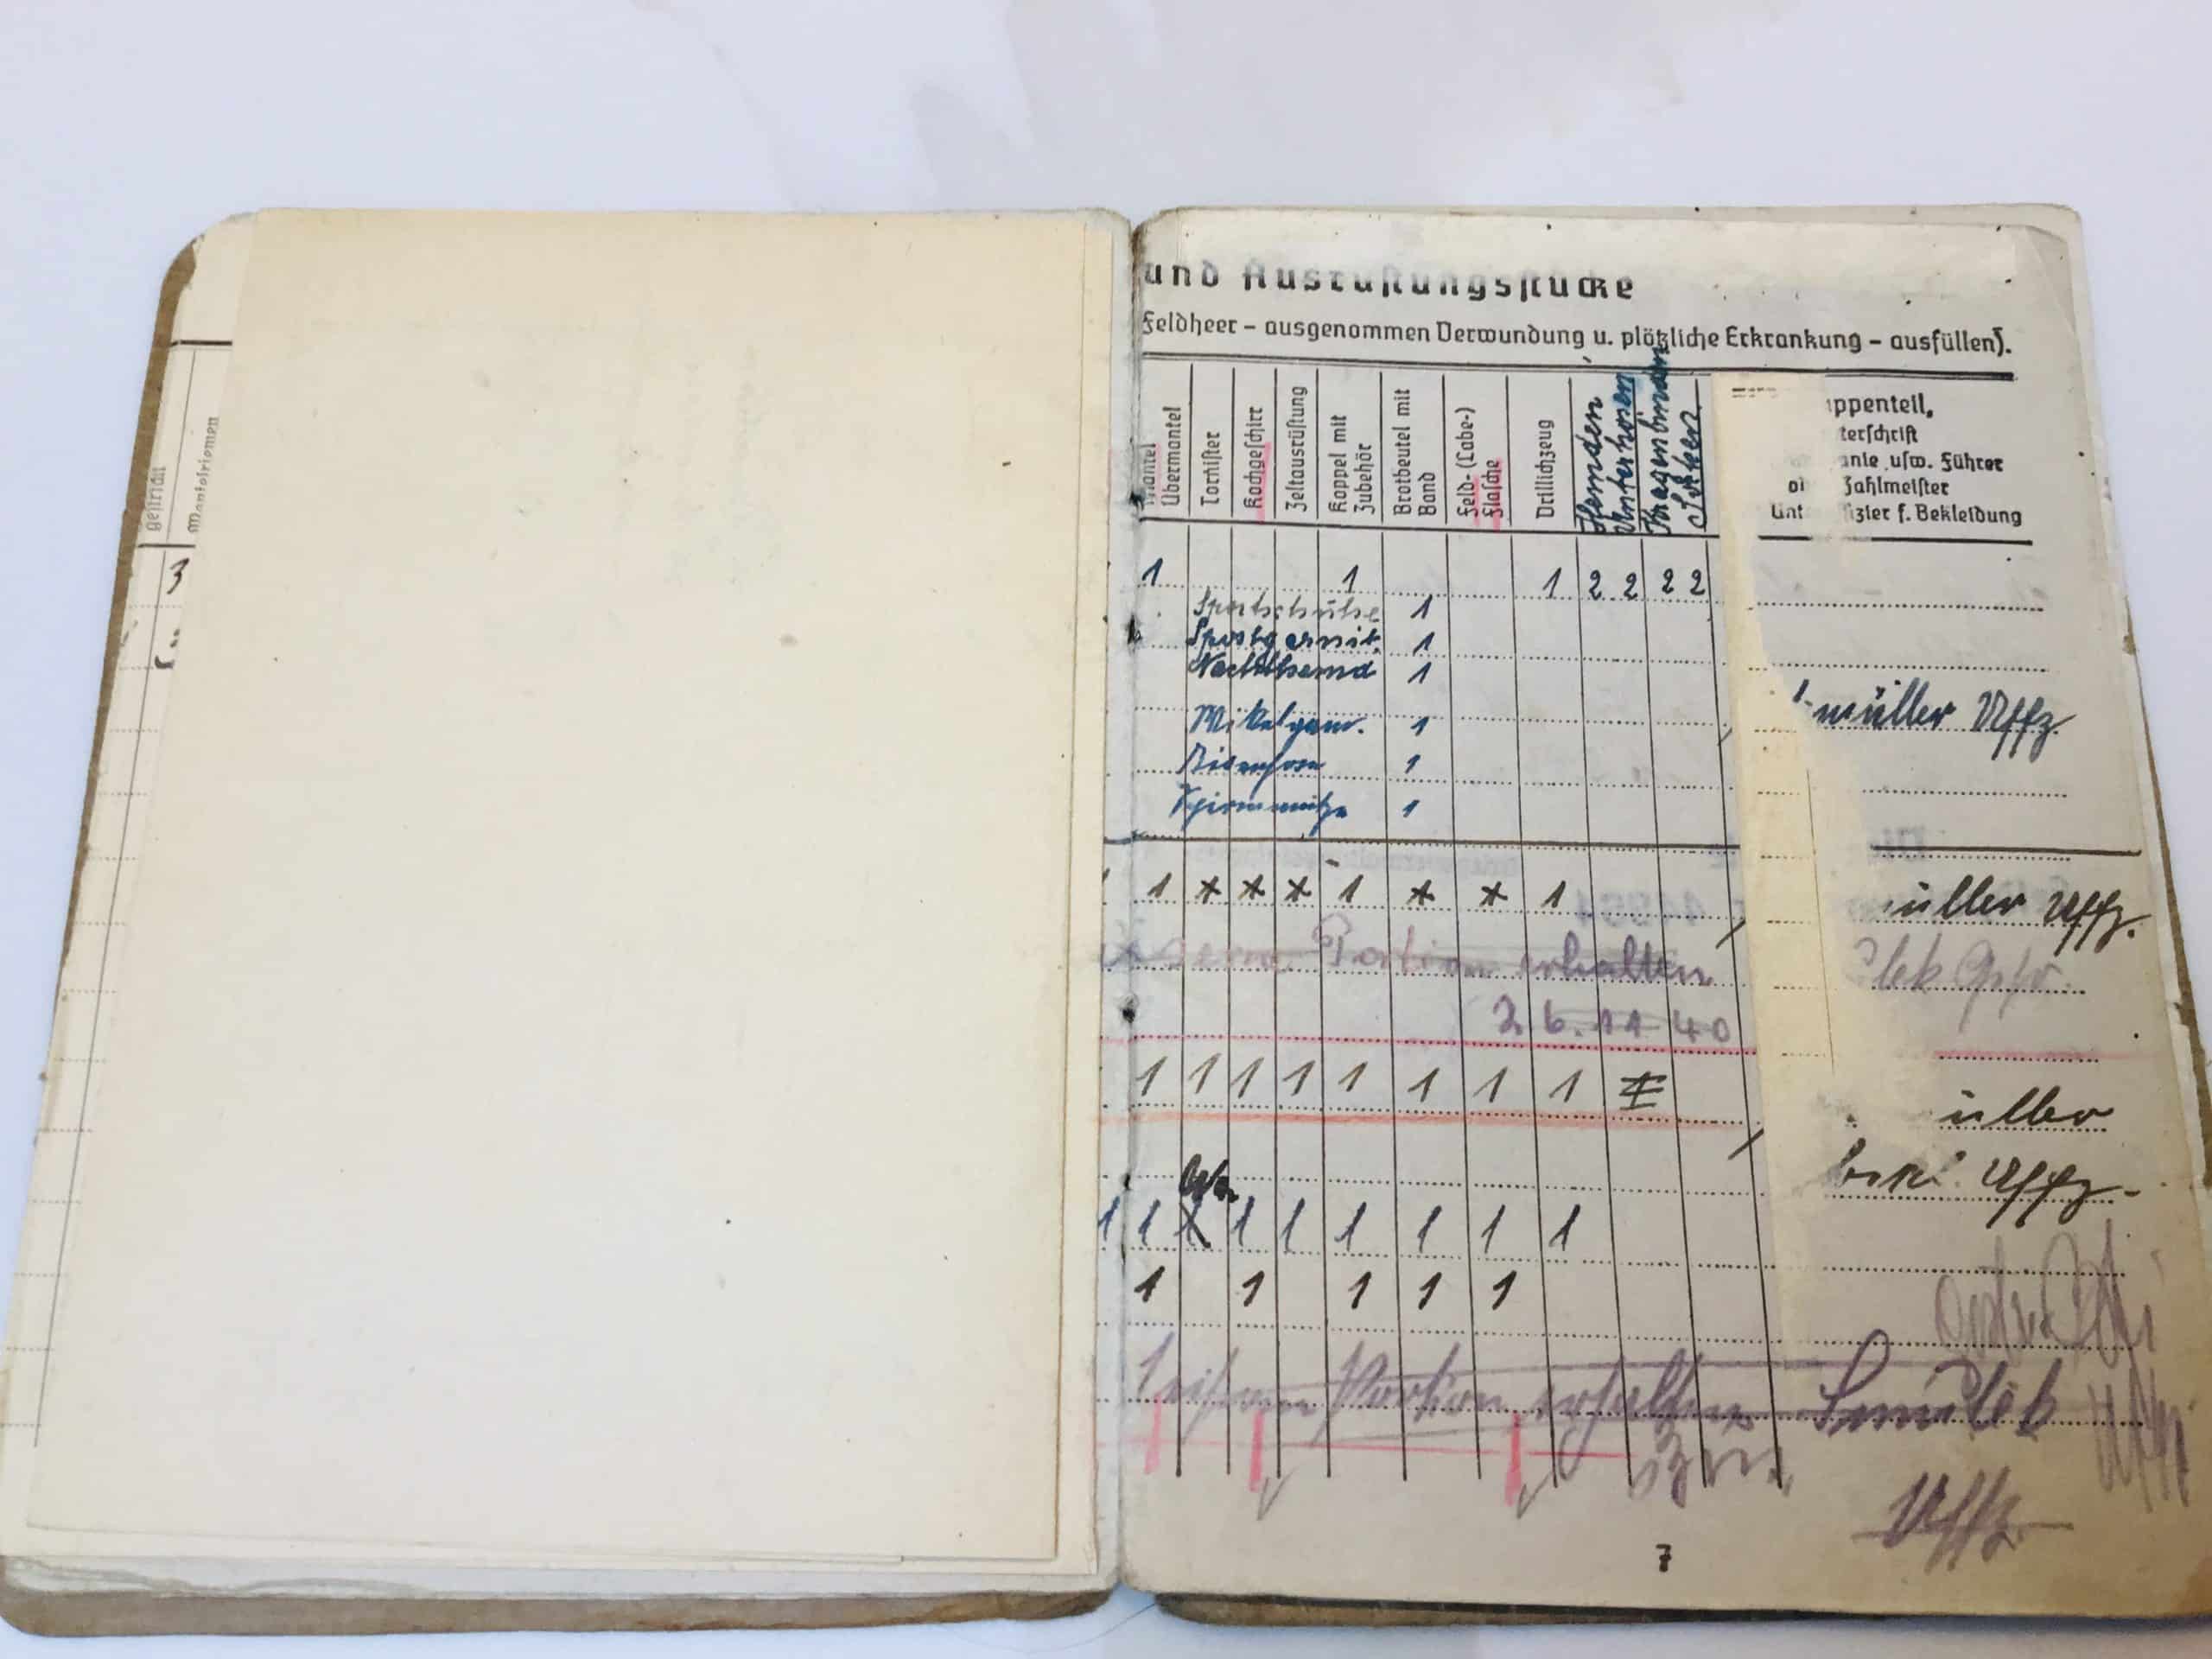 gestrickt
Mantelriemen
3
und Ausrüstungsstücke
Feldheer – ausgenommen Verwundung u. plötzliche Erkrankung – ausfüllen).
Mantel
Übermantel
Tornister
Kochgeschirr
Zeltausrüstung
Koppel mit
Zubehör
Brotbeutel mit
Band
Feld-(Labe-)
Flasche
Drillichzeug
Hemden
Unterhosen
Kragenbinden
Socken
uppenteil,
terschrift
anie usw. Führer
Zahlmeister
Unt izier f. Bekleidung
1 1 1 2 2 2 2
Sportschuhe 1
Sportgarnit. 1
Nachthemd 1
müller Uffz.
1
1
Schirmmütze 1
1 * * * 1 * * 1
üller Uffz.
Eiserne Portion erhalten
Gefr.
26.11 40
1 1 1 1 1 1 1 1
üller
Uffz.
1 1 1 1 1 1 1 1
1 1 1 1 1
Eiserne Portion erhalten
Uffz
7